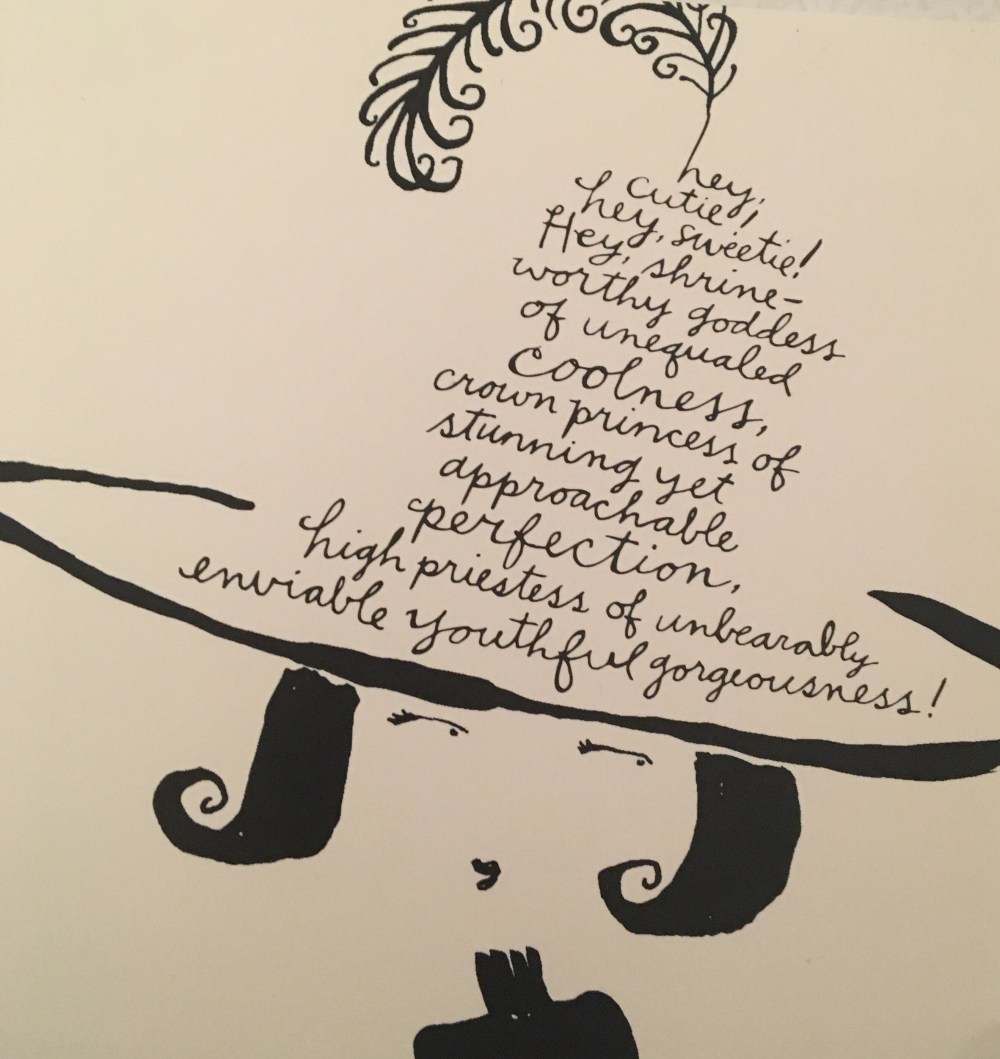 hey,
cutie!
hey, sweetie!
Hey, shrine-
worthy goddess
of unequaled
coolness,
crown princess of
stunning yet
approachable
perfection,
high priestess of unbearably
enviable youthful gorgeousness!